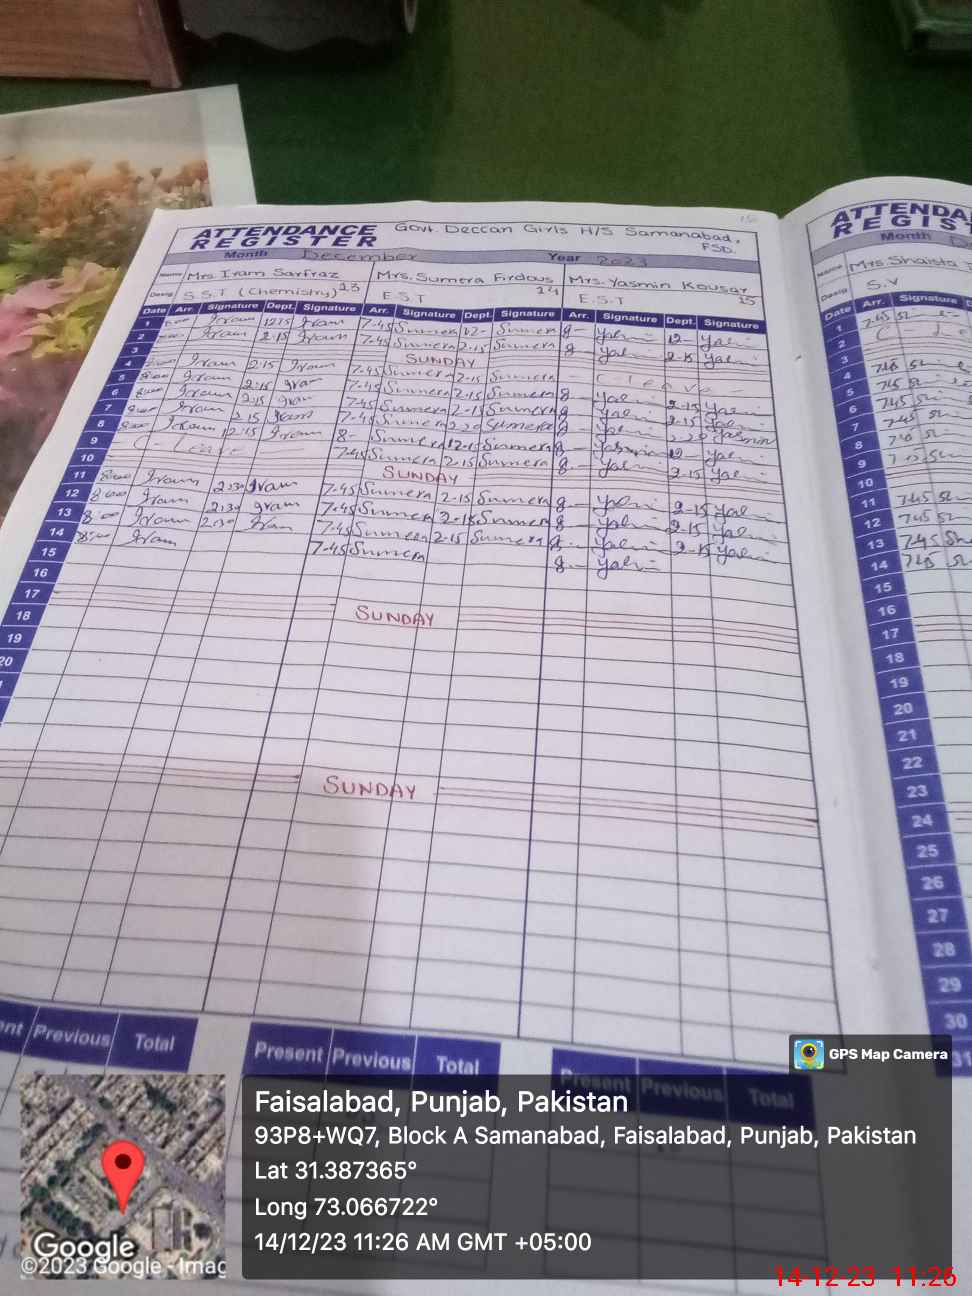 ATTENDANCE REGISTER Govt. Deccan Girls H/S Samanabad, FSD.
Month December Year 2023
Name Mrs Iram Sarfraz Mrs. Sumera Firdous Mrs. Yasmin Kousar
Desig S.S.T (Chemistry) 13 E.S.T 14 E.S.T 15
Date Arr. Signature Dept. Signature Arr. Signature Dept. Signature Arr. Signature Dept. Signature
1 Iram 1215 Iram 7-45 Sumera 12- Sumera 8- 12-
2 Iram 2.15 Iram 7-45 Sumera 2.15 Sumera 8- 2-15
3 SUNDAY
4 Iram 2.15 Iram 7-45 Sumera 2-15 Sumera C leave
5 8:00 Iram 2:15 Iram 7-45 Sumera 2.15 Sumera 8- 2-15
6 8:00 Iram 2.15 Iram 7-45 Sumera 2-15 Sumera 8- 2-15
7 Iram 2.15 Iram 7-45 Sumera 2.20 Sumera 8- 2-20 Yasmin
8 Iram 12.15 Iram 8- Sumera 12-15 Sumera 8- 12-
9 C- Leave 7-45 Sumera 2-15 Sumera 8- 2-15
10 SUNDAY
11 8:00 Iram 2:30 Iram 7-45 Sumera 2-15 Sumera 8- 2-15
12 8:00 Iram 2:30 Iram 7-45 Sumera 2-15 Sumera 8- 2-15
13 8:00 Iram 2:30 Iram 7-45 Sumera 2-15 Sumera 8- 2-15
14 8:00 Iram 7-45 Sumera 8-
15
16
17 SUNDAY
18
19
20
SUNDAY
Present Previous Total Present Previous Total
Previous Total
ATTENDA
REGIST
Month D
Name Mrs Shaista
Desig S.V
Date Arr. Signature
1 7-45
2
3
4 745
5 745
6 745
7 745
8 745
9
10
11 745
12 745
13 745
14 745
15
16
17
18
19
20
21
22
23
24
25
26
27
28
29
30
31
GPS Map Camera
Faisalabad, Punjab, Pakistan
93P8+WQ7, Block A Samanabad, Faisalabad, Punjab, Pakistan
Lat 31.387365°
Long 73.066722°
14/12/23 11:26 AM GMT +05:00
Google
©2023 Google - Imag
14-12-23 11:26